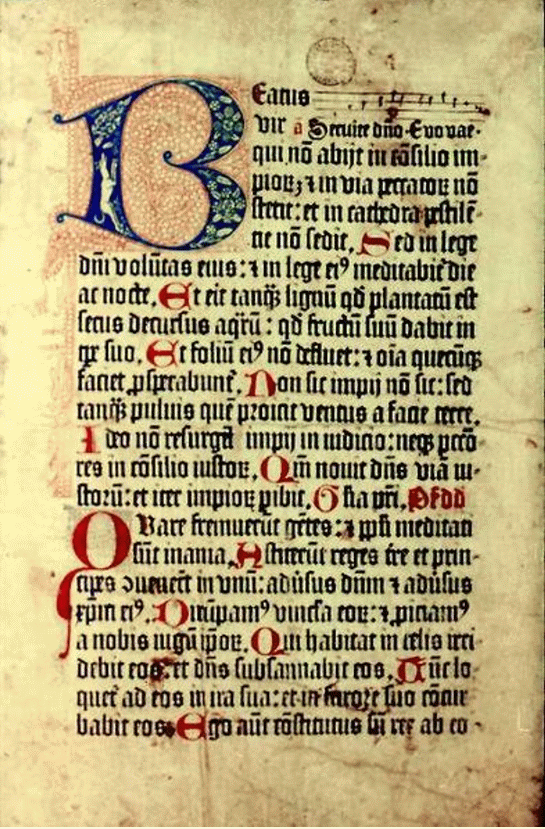 Beatus
vir a Seruite dño. Evovae.
qui nõ abijt in cõsilio im-
pioꝝ ⁊ in via peccatoꝝ nõ
stetit: et in cathedra pestilẽ-
tie nõ sedit. Sed in lege
dñi volũtas eius: ⁊ in lege eiꝰ meditabit̃ die
ac nocte. Et erit tanqꝫ lignũ qd̃ plantatũ est
secus decursus aqr̃ũ: qd̃ fructũ suũ dabit in
tp̃e suo. Et foliũ eiꝰ nõ defluet: ⁊ oĩa quecũqꝫ
faciet ꝓsperabunt̃. Non sic impij nõ sic: sed
tanqꝫ puluis quẽ proicit ventus a facie terre.
Ideo nõ resurgẽt impij in iudicio: neqꝫ pccõ
res in cõsilio iustoꝝ. Qm̃ nouit dñs viã iu-
storũ: et iter impioꝝ ꝑibit. Gl̃ia pr̃i. Ps̃ dd
Quare fremuerũt gẽtes: ⁊ pp̃li meditati
sũt inania. Astiterũt reges tr̃e et prin-
cipes ꝯuenerũt in vnũ: adũsus dñm ⁊ adũsus
xp̃m eiꝰ. Dirũpamꝰ vincl̃a eoꝝ: ⁊ ꝓiciamꝰ
a nobis iugũ ip̃oꝝ. Qui habitat in celis irri
debit eos: et dñs subsannabit eos. Tũc lo
quet̃ ad eos in ira sua: et in furore suo cõtur
babit eos. Ego aũt cõstitutus sũ rex ab eo-